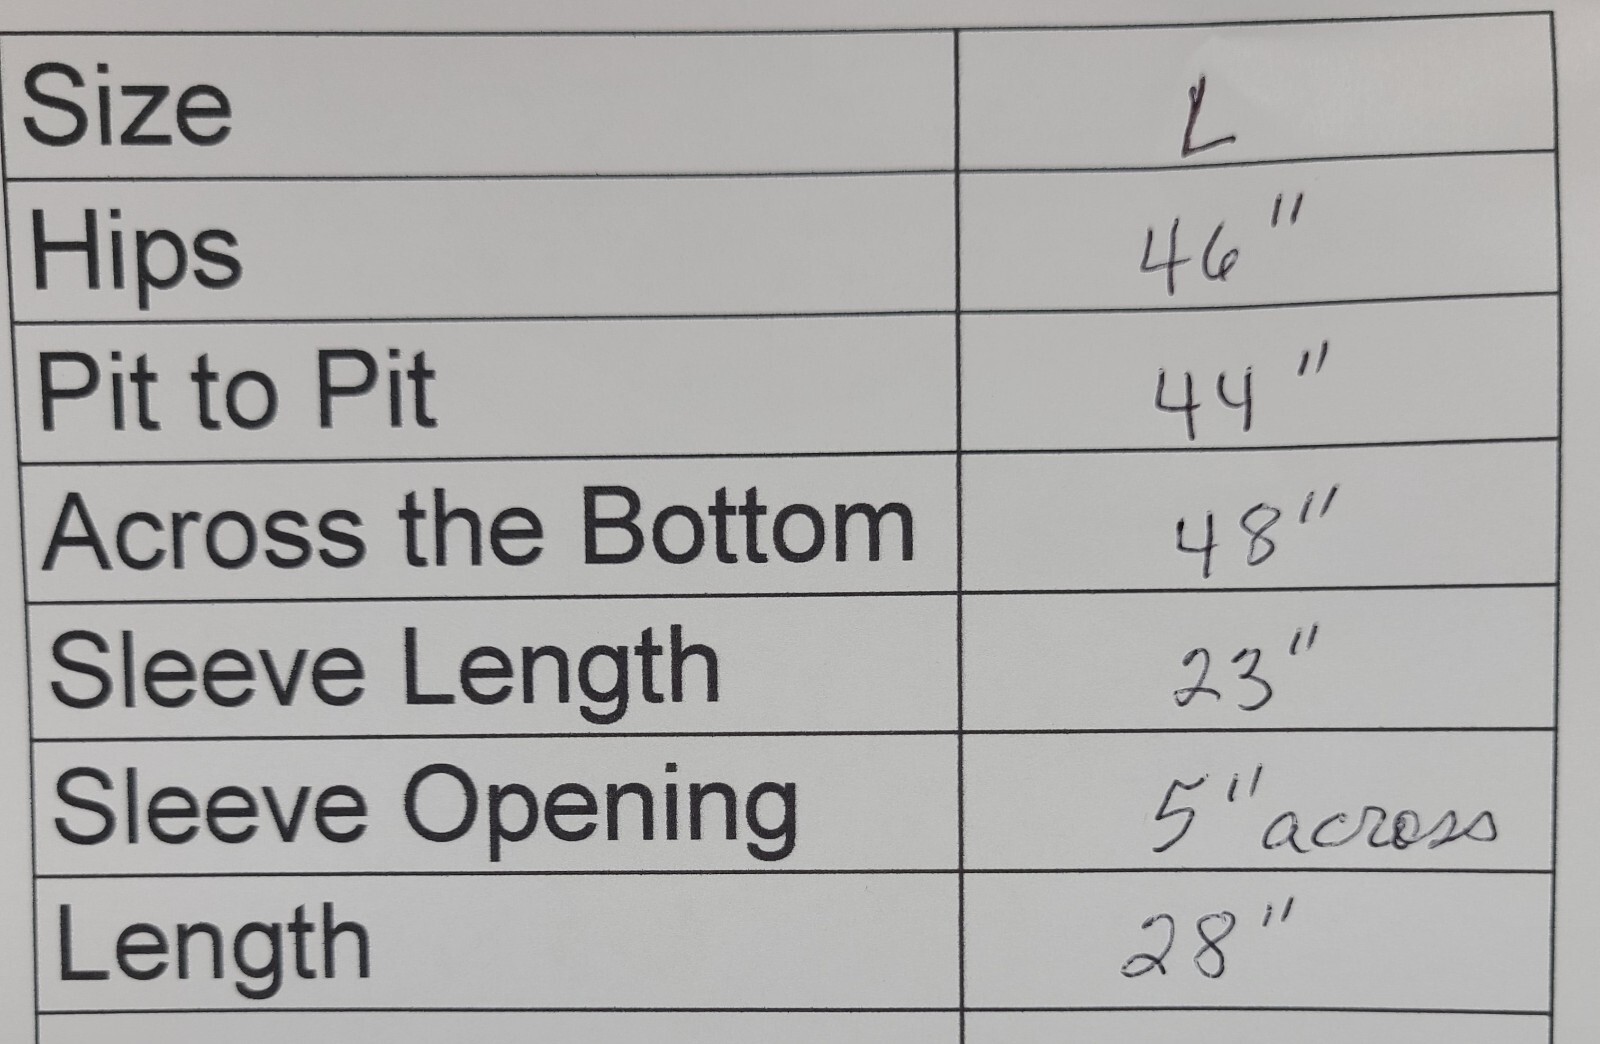 Size L
Hips 46"
Pit to Pit 44"
Across the Bottom 48"
Sleeve Length 23"
Sleeve Opening 5" across
Length 28"